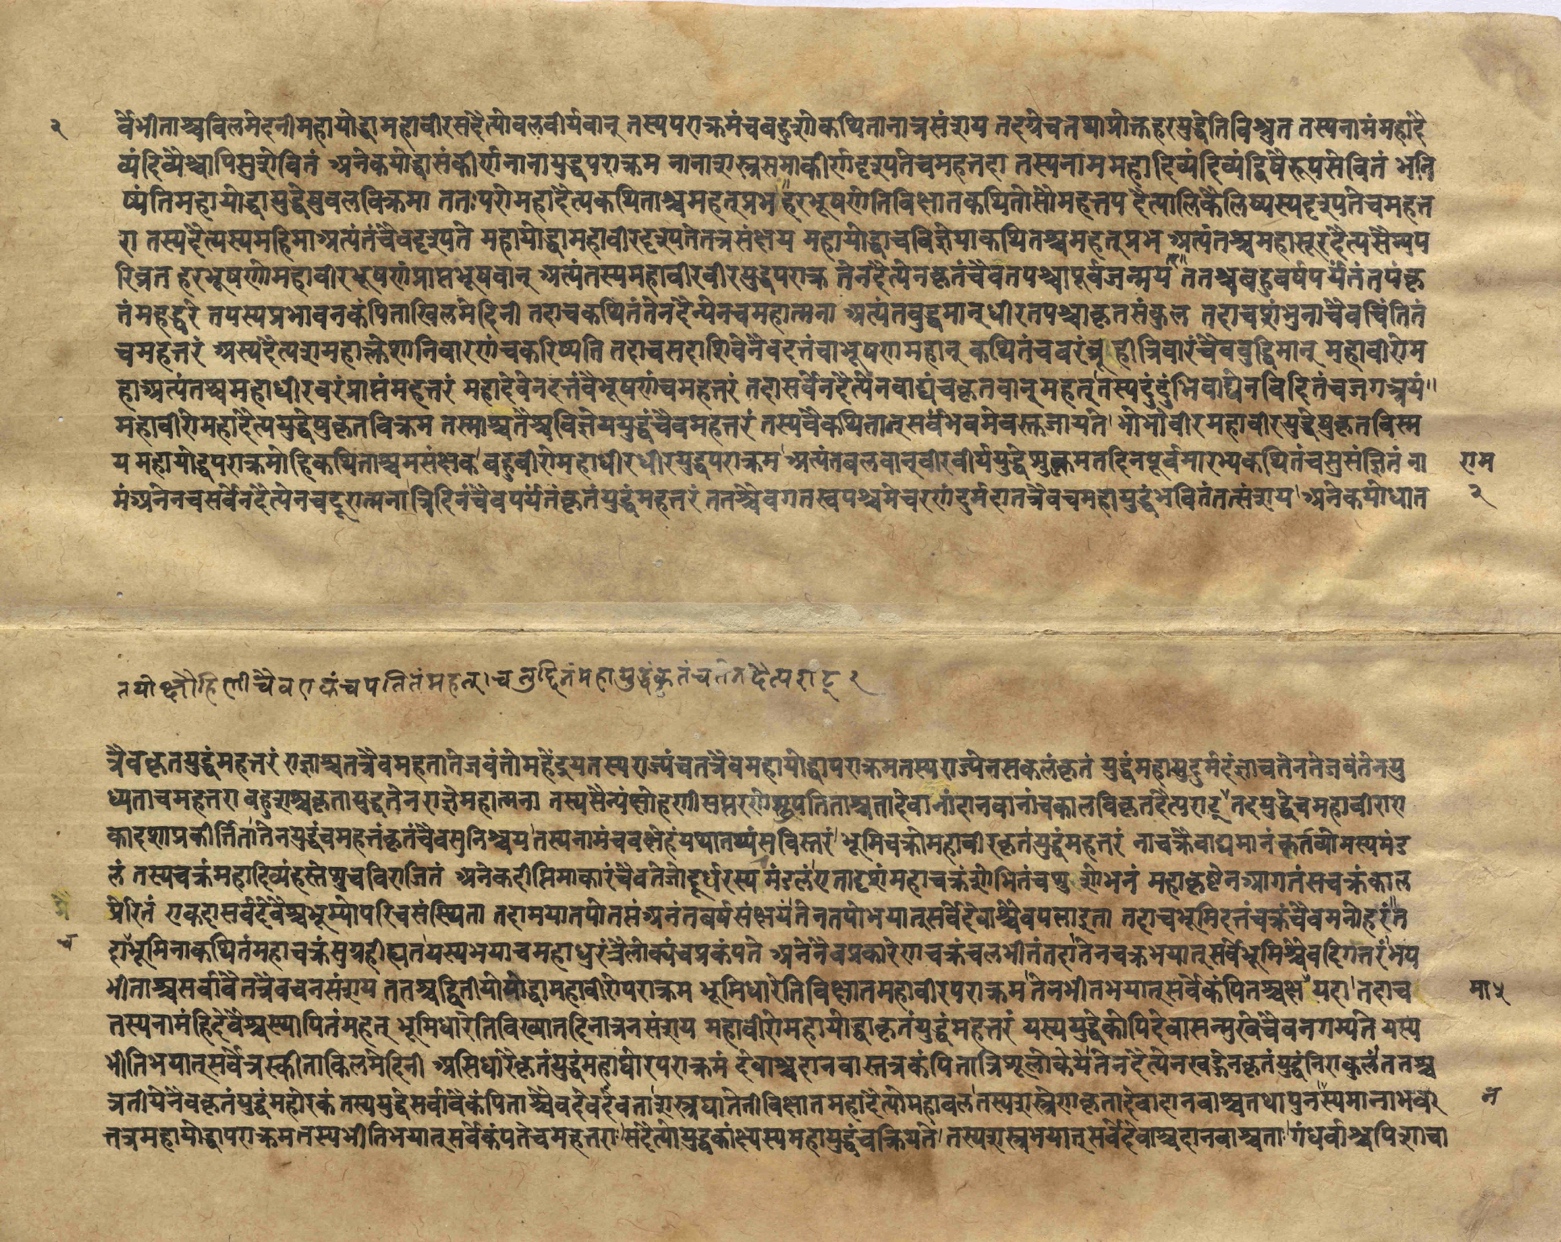 २ र्वेभीताश्चविलमेदनीमहायोद्धामहावीरसदैत्योवलवीर्यवान् तस्यपराक्रमंचवहुशोकथितानात्रसंशय तदग्रेचनयाप्रोक्तहरयुद्धेतिविश्रुत तस्यनाममहादै
व्यंदिव्यैश्चापिसुशेवितं अनेकयोद्धासंकीर्णनानायुद्धपराक्रम नानाशस्त्रसमाकीर्णदृश्यतेचमहत्तदा तस्यनाममहादिव्यंदिव्यं
ष्यंतिमहायोद्धायुद्धेसुवलविक्रमा ततःपरोमहादैत्यकथिताश्चमहत्प्रभ हरभूषणेतिविख्यातकथितोसौमहत्तप
रा तस्यदैत्यस्यमहिमाअत्यंतंचैवदृश्यते महायोद्धामहावीरदृश्यतेतत्रसंक्षय महायोद्धाचविज्ञेयाकथितश्चमहत्प्रभ अत्यंतश्चमहासूरदैत्यसैन्यप
रिव्रत हरभूषणोमहावीरभूषणंप्राप्तभूषवान् अत्यंतस्यमहावीरवीरयुद्धपराक्र तेनदैत्येनकृतंचैवतपश्चापूर्वजन्मयं ततश्चवहुवर्षपर्यंतंतपंकृ
तंमहद्दुरे तपस्यप्रभावनकंपिताखिलमेदिनी तदाचकथितंतेनदैन्येनचमहात्मना अत्यंतवुद्धमान्धीरतपश्चाकृतसंकुल तदाचशंभुनाचैवचिंतितं
चमहत्तरं अस्यदैत्यशमहाक्लेशनिवारणंचकरिष्यति तदाचसदाशिवेनैवदत्तंचाभूषणमहान् कथितंचवरंव्रूहीत्रिवारंचैववुद्धिमान् महावीरोम
हाअत्यंतश्चमहाधीरवरंप्राप्तंमहत्तरं महादेवेनदत्तंवैभूषणंचमहत्तरं तदासर्वेनदैत्येनवाद्यंचकृतवान्महत् तस्यदुंदुभिवाद्येनविदितंचजगत्त्रयं॥
महावीरोमहादैत्ययुद्धेषुकृतविक्रम तस्माश्चतैश्चविज्ञेययुद्धंचैवमहत्तरं तस्यवैकथितात्सर्वभवमेवस्तजायते भोभोवीरमहावीरयुद्धेषुकृतविस्म
य महायोद्धपराक्रमोहिकथिताश्चमसंक्षक वहुवीरोमहाधीरधीरयुद्धपराक्रम अत्यंतवलवान्वीरवीर्ययुद्धे पूर्वमारभ्यकथितंचमुसंज्ञितं ना राम
मंअनेनचसर्वेनदैत्येनचदूरात्मना त्रिदिनंचैवपर्यंतंकृतंयुद्धंमहत्तरं ततश्चैवगतस्वपश्चमेचरणं महायुद्धंभवितंतत्संशय अनेकयोधात २
त्रयोक्षौहिणीचैवएकंचपतितंमहत् चतुर्दिनंमहायुद्धंकृतंचतेनदैत्यराट् २
त्रैवकृतयुद्धंमहत्तरं राज्ञाश्चतत्रैवमहतातेजवंतोमहेंद्र तस्यराज्यंचतत्रैवमहायोद्धापराक्रमतस्यराज्येनसकलंकृतं
ध्यताचमहत्तरा वहुशश्चकृतायुद्धतेनराज्ञेमहात्मना तस्यसैन्यं देवानांदानवानांचकालविकृतंदैत्यराट् तदयुद्धेचमहावीराए
कादशाप्रकीर्तिता तेनयुद्धंचमहत्तंकृतंचैवसुनिश्चय तस्यनामंचवक्षेहंयथातथ्यंसविस्तरं भूमिचक्रोमहावीरकृतंयुद्धंमहत्तरं नाचक्रैवाद्यमानंकर्तव्योमस्यमंड
लं तस्यचक्रंमहादिव्यंहस्तेषुचविराजितं अनेकदीप्तिमाकारंचैवतेजोदूर्धरस्य मंडलंएतादृशंमहाचक्रंशोभितंचषु शोभनं महाकृष्टेनआगतंसचक्रंकाल
प्रेरितं एकदासर्वदेवैश्चभूम्योपरिचसंस्थिता तदामयातपोतप्तंअनंतवर्षसंक्षयं तेनतपोभयात्सर्वेदेवाश्चैवपलादुता तदाचभूमिदत्तंचक्रंचैवमनोहरं त
दाभूमिनाकथितंमहाचक्रंसुग्रहीह्यत यस्यभयाचमहाधुरंत्रैलोक्यंचप्रकंपते अनेनैवप्रकारेणचक्रंचलभीतंतदा तेनचक्रभयात्सर्वेभूमिश्चैवदिगंतरं भय
भीताश्चसर्वावैतत्रैवचनसंशय ततश्चद्वितीयोयोद्धामहावीरोपराक्रम भूमिधारेतिविख्यातमहावीरपराक्रम तेनभीतभयात्सर्वेकंपितश्चक्ष यदा तदाच मा५
तस्यनामंहिदेवैश्चस्थापितंमहत् भूमिधारेतिविख्यातदिनात्रनसंशय महावीरोमहायोद्धाकृतंयुद्धंमहत्तरं यस्ययुद्धेकोपिदेवासन्मुखेचैवनगम्यते यस्य
भीतिभयात्सर्वेत्रस्कीताकिलमेदिनी असिधारेकृतंयुद्धंमहाघोरपराक्रमं देवाश्चदानवास्तत्रकंपितात्रिषुलोकेयं तेनदैत्येनखड्गेनकृतंयुद्धंनिराकुलं ततश्च
त्रतीयेनैवकृतंयुद्धंमहोरकं तस्ययुद्धेसर्वावैकंपिताश्चैवदेवदेवता शस्त्रघातेतीविख्यातमहादैत्योमहावल तस्यशस्त्रेणकृतादेवादानवाश्चतथापुन स्यमानाभवे न
तत्रमहायोद्धापराक्रमतस्यभीतिभयात्सर्वेकंपतेचमहत्तरा सदैत्योयुद्धकांक्ष्यस्यमहायुद्धंचक्रियते तस्यशस्त्रभयात्सर्वेदेवाश्चदानवाश्चता गंधर्वाश्चपिशाचा